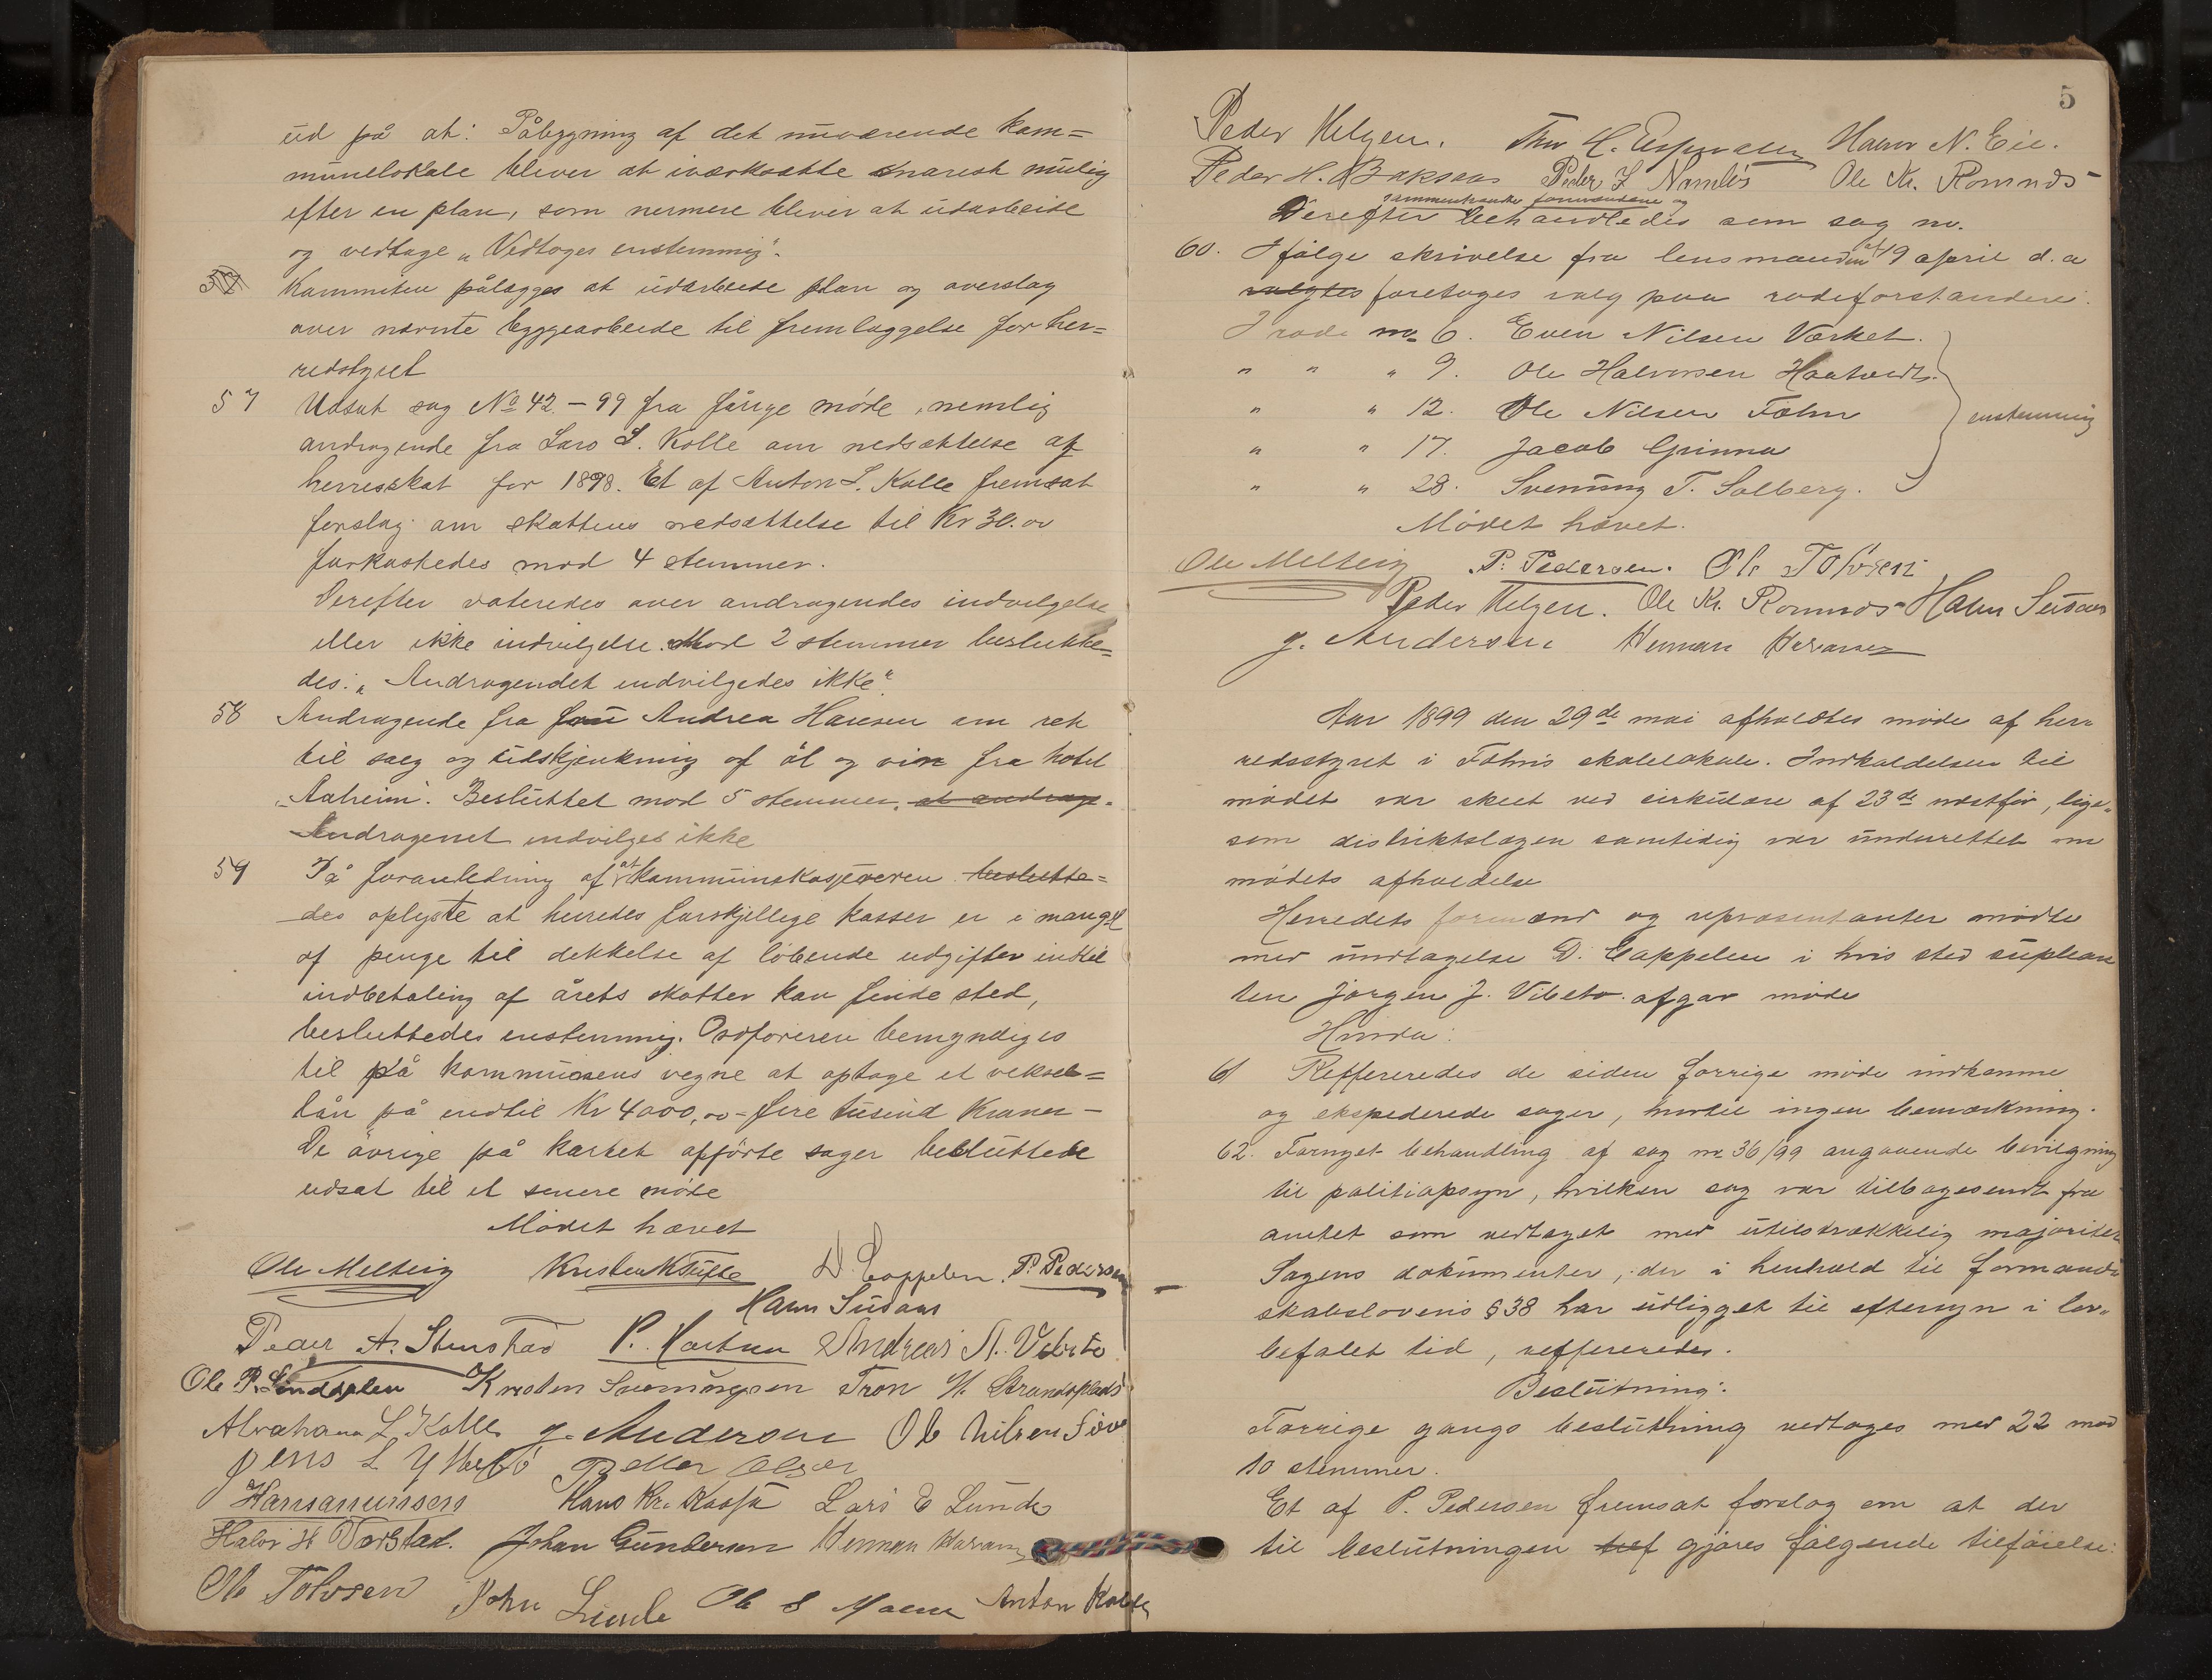 ud på at: Påbygning af det nuværende kom=
munelokale bliver at iværksætte snarest mulig
efter en plan, som nermere bliver at udarbeide
og vedtage „Vedtoges enstemmig“.
Kommiteen pålægges at udarbeide plan og overslag
over nævnte byggearbeide til fremlæggelse for her=
redstyret
57 Udsat sag No 42 - 99 fra forrige møde, nemlig
andragende fra Lars L. Kolle om nedsættelse af
herredskat for 1898. Et af Anton L. Kolle fremsat
forslag om skattens nedsættelse til Kr 30.00
forkastedes mod 4 stemmer.
Derefter voteredes over andragendes indvilgelse
eller ikke indvilgelse. Mod 2 stemmer beslutte=
des: „Andragendet indvilgedes ikke“
58 Andragende fra fru Andrea Hansen om ret
til salg og udskjænkning af øl og vin fra hotel
„Aaheim“. Besluttet mod 5 stemmer, at andrag=
Andragenet indvilges ikke
59 På foranledning af at kommunekassereren beslutte=
des oplyste at herredes forskjellige kasser er i mangel
af penge til dekkelse af løbende udgifter indtil
indbetaling af årets skatter kan finde sted,
besluttedes enstemmig: Ordføreren bemyndiges
til på kommunens vegne at optage et veksel=
lån på indtil Kr 4000,00 - fire tusind Kroner -
De øvrige på kartet opførte sager besluttede
udsat til et senere møde
Mødet hævet
Ole Melteig Kristen K Tufte D. Cappelen. P. Pedersen
Halvor Sudaas
Peder A. Stenstad P. Kortnes Andreas A. Vibeto
Ole P. Lindsplen Kristen Svenningsen Tron H. Strandsplads
Abraham L Kolle g. Anderson Ole Nilsen Fiov
Jens L Ytterbø Petter Olsen
Hans Kr. Kaasa Lars E Lunde
Halvor H Værstad. Johan Gundersen Herman
Ole Tovsen John Lunde Ole S Moen Anton Kolle
5
Peder Helgen. Thor H. Espersen Halvor N. Eie.
Peder H. Baksaas Peder L Namløs Ole Kr. Romnes
sammentraadte formændene og
Derefter behandledes som sag nr.
60. Ifølge skrivelse fra lensmanden af 19 april d. a
valgtes foretoges valg paa rodeforstandere:
I rode nr. 6. Even Nilsen Værket.
„ „ „ 9. Ole Halvorsen Haatvedt.
„ „ 12. Ole Nilsen Fæhn
„ „ 17. Jacob Grinna
„ „ 28. Svenung T. Solberg.
enstemmig
Mødet hævet.
Ole Melteig P. Pedersen. Ole Tovsen
Peder Helgen. Ole Kr. Romnes Halvor Sudaas
g. Anderson Herman
Aar 1899 den 29de mai afholdtes møde af her=
redsstyret i Fæhns skolelokale. Indkaldelsen til
mødet var skeet ved cirkulære af 23de næstfør, lige=
som distriktslægen samtidig var underrettet om
mødets afholdelse
Herredets formænd og repræsentanter mødte
med undtagelse D. Cappelen i hvis sted suplean
ten Jørgen J. Vibeto afgav møde
Hvorda:
61 Reffereredes de siden forrige møde indkomne
og ekspederede sager, hvortil ingen bemærkning.
62. Fornyet behandling af sag nr. 36/99 angaaende bevilgning
til politiopsyn, hvilken sag var tilbagesendt fra
amtet som vedtaget med utilstrækkelig majoritet
Sagens dokumenter, der i henhold til formand=
skabslovens § 38 har udligget til eftersyn i lov=
befalet tid, reffereredes.
Beslutning:
Forrige gangs beslutning vedtoges med 22 mod
10 stemmer.
Et af P. Pedersen fremsat forslag om at der
til beslutningen gjøres følgende tilføielse: